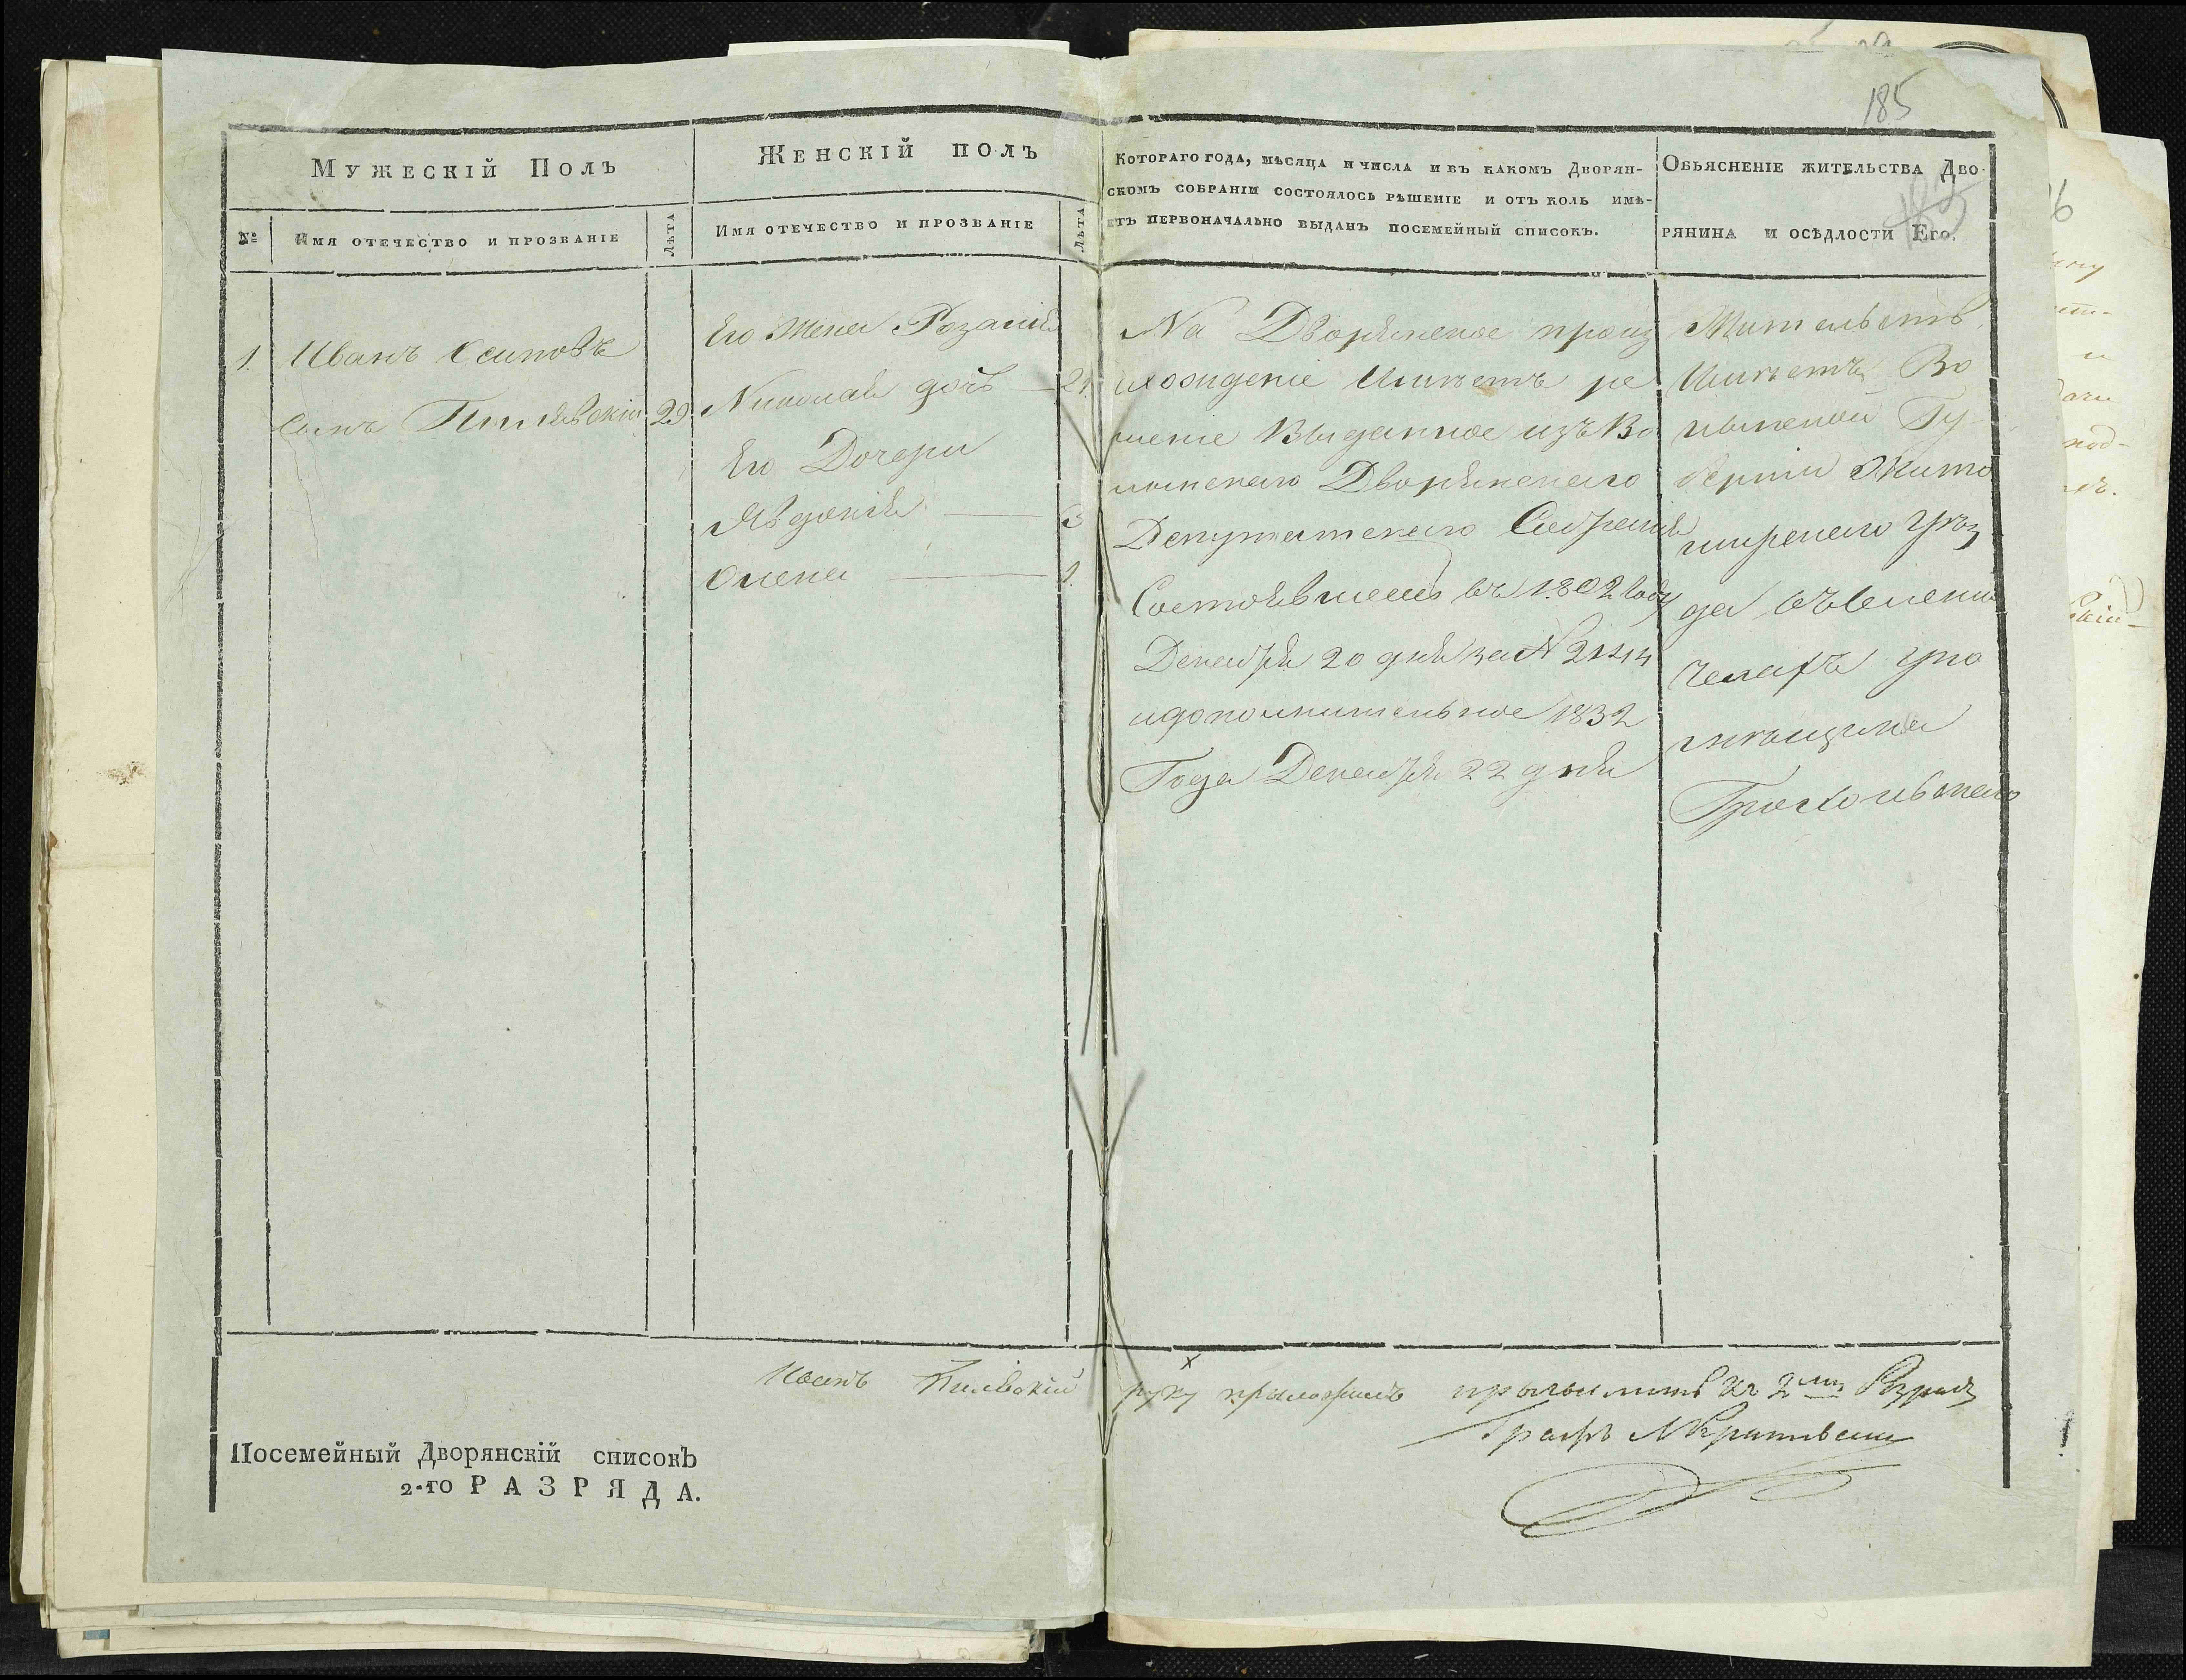 185
МУЖЕСКІЙ ПОЛЪ
ЖЕНСКІЙ ПОЛЪ
КОТОРАГО ГОДА, МѢСЯЦА И ЧИСЛА И ВЪ КАКОМЪ ДВОРЯН-
СКОМЪ СОБРАНІИ СОСТОЯЛОСЬ РѢШЕНІЕ И ОТЪ КОЛЬ ИМѢ-
ЕТЪ ПЕРВОНАЧАЛЬНО ВЫДАНЪ ПОСЕМЕЙНЫЙ СПИСОКЪ.
ОБЬЯСНЕНІЕ ЖИТЕЛЬСТВА ДВО-
РЯНИНА И ОСѢДЛОСТИ ЕГО.
№
ИМЯ ОТЕЧЕСТВО И ПРОЗВАНІЕ
ЛѢТА
ИМЯ ОТЕЧЕСТВО И ПРОЗВАНІЕ
ЛѢТА
1. Иванъ Осиповъ
Сынъ Пилявскій 29.
Его Жена Розалія
Николая дочь 21.
Его Дочери
Явдокія 3
Олена 1.
На Дворянское произ
хождение Имѣетъ ре
шеніе Выданное изъ Во
лынскаго Дворянскаго
Депутатскаго Собранія
Состоявшееся въ 1802 году
Декабря 20 дня за №
и дополнительное 1832
Года Декабря 22 дня
Жительств.
Имѣетъ Во
лынской Гу
берніи Жито
мирскаго уѣз
да въ селеніи
у по
мѣщика
Иванъ Пилявскій руку приложилъ
2 Розряд
Графъ
Посемейный Дворянскій списокъ
2-го РАЗРЯДА.